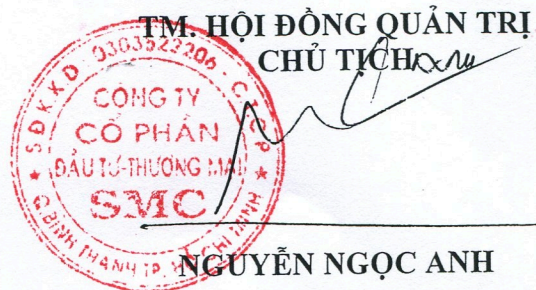 TM. HỘI ĐỒNG QUẢN TRỊ
CHỦ TỊCH
SĐKKD 0303522206 - C.T.C.P
CÔNG TY
CỔ PHẦN
ĐẦU TƯ-THƯƠNG MẠI
SMC
Q. BÌNH THẠNH TP. HỒ CHÍ MINH
NGUYỄN NGỌC ANH